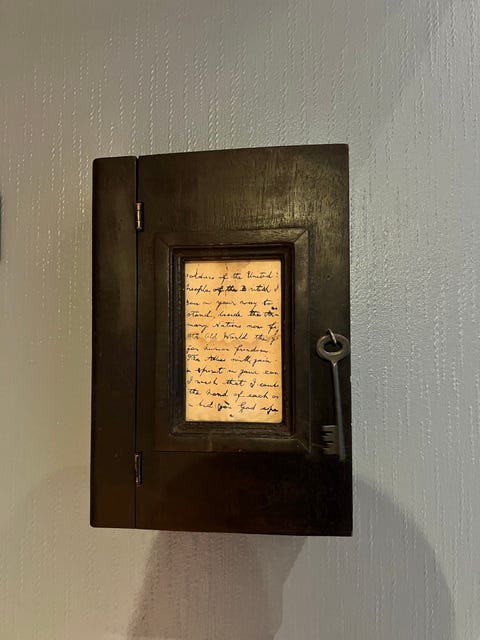 soldiers of the United
People of the British I
our on your way to
stand, beside the
many Nations now
the Old World the
for human freedom.
The Allies will gain
a spirit in your com
I wish that I could
the hand of each
bid you God spe